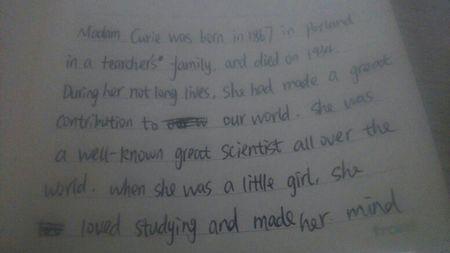 Madam Curie was born in 1867 in porland
in a tearchers' family. and died on 1934.
During her not long lives, she had made a great
contribution to our world. she was
a well-known great scientist all over the
world. when she was a little girl, she
loved studying and made her mind